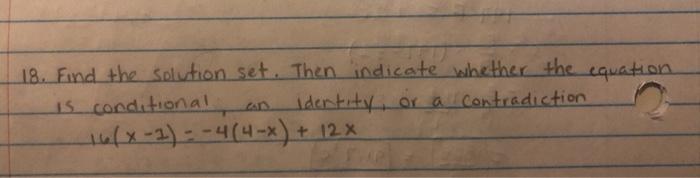 18. Find the solution set. Then indicate whether the equation
is conditional, an identity, or a contradiction
16(x-1) = -4(4-x) + 12x